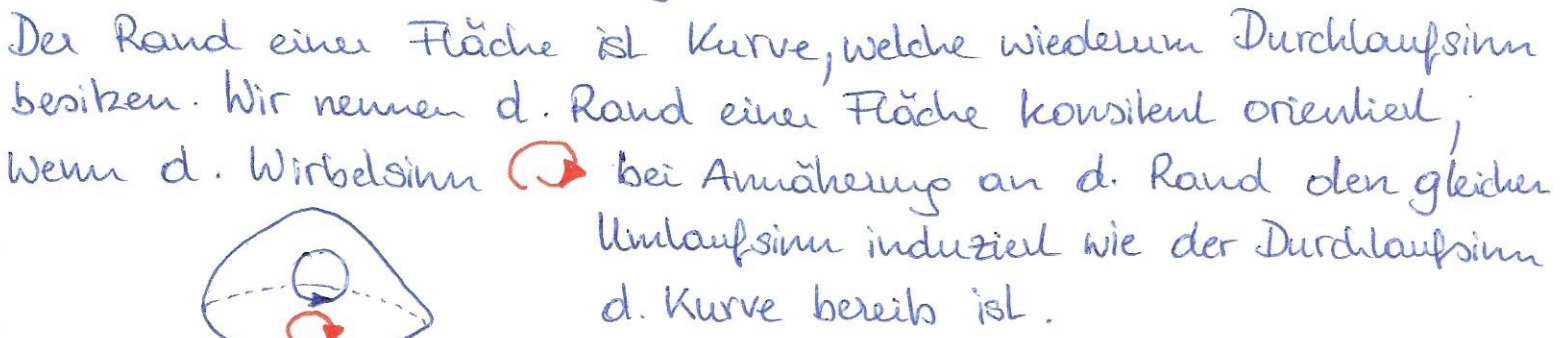 Der Rand einer Fläche ist Kurve, welche wiederum Durchlaufsinn
besitzen. Wir nennen d. Rand einer Fläche konsitent orientiert,
wenn d. Wirbelsinn bei Annäherung an d. Rand den gleichen
Umlaufsinn induziert wie der Durchlaufsinn
d. Kurve bereits ist.